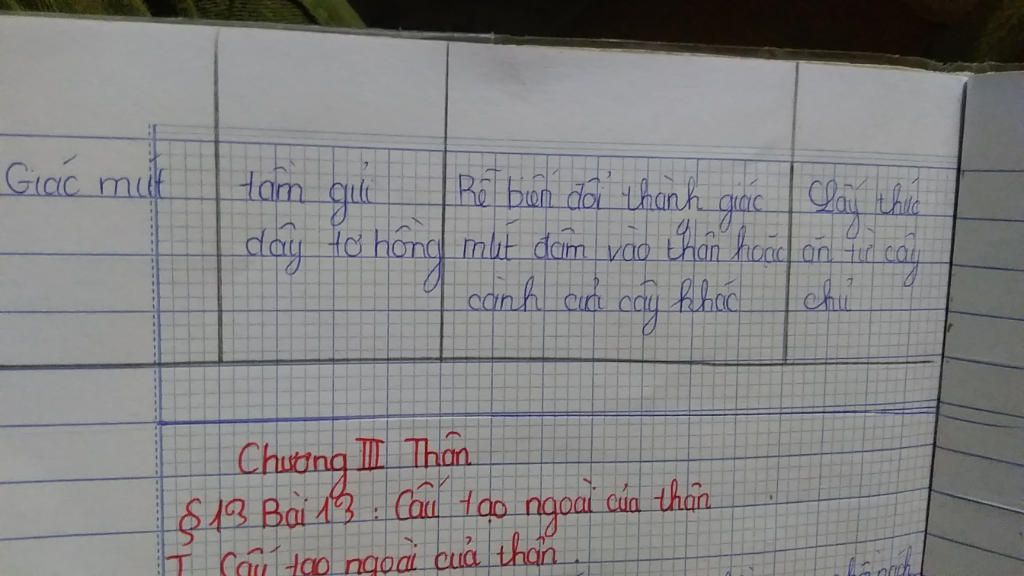 Giác mút
tầm gửi
dây tơ hồng
Rễ biến đổi thành giác
mút đâm vào thân hoặc
cành của cây khác
Lấy thức
ăn từ cây
chủ
Chương III Thân
§13 Bài 13: Cấu tạo ngoài của thân
I Cấu tạo ngoài của thân.